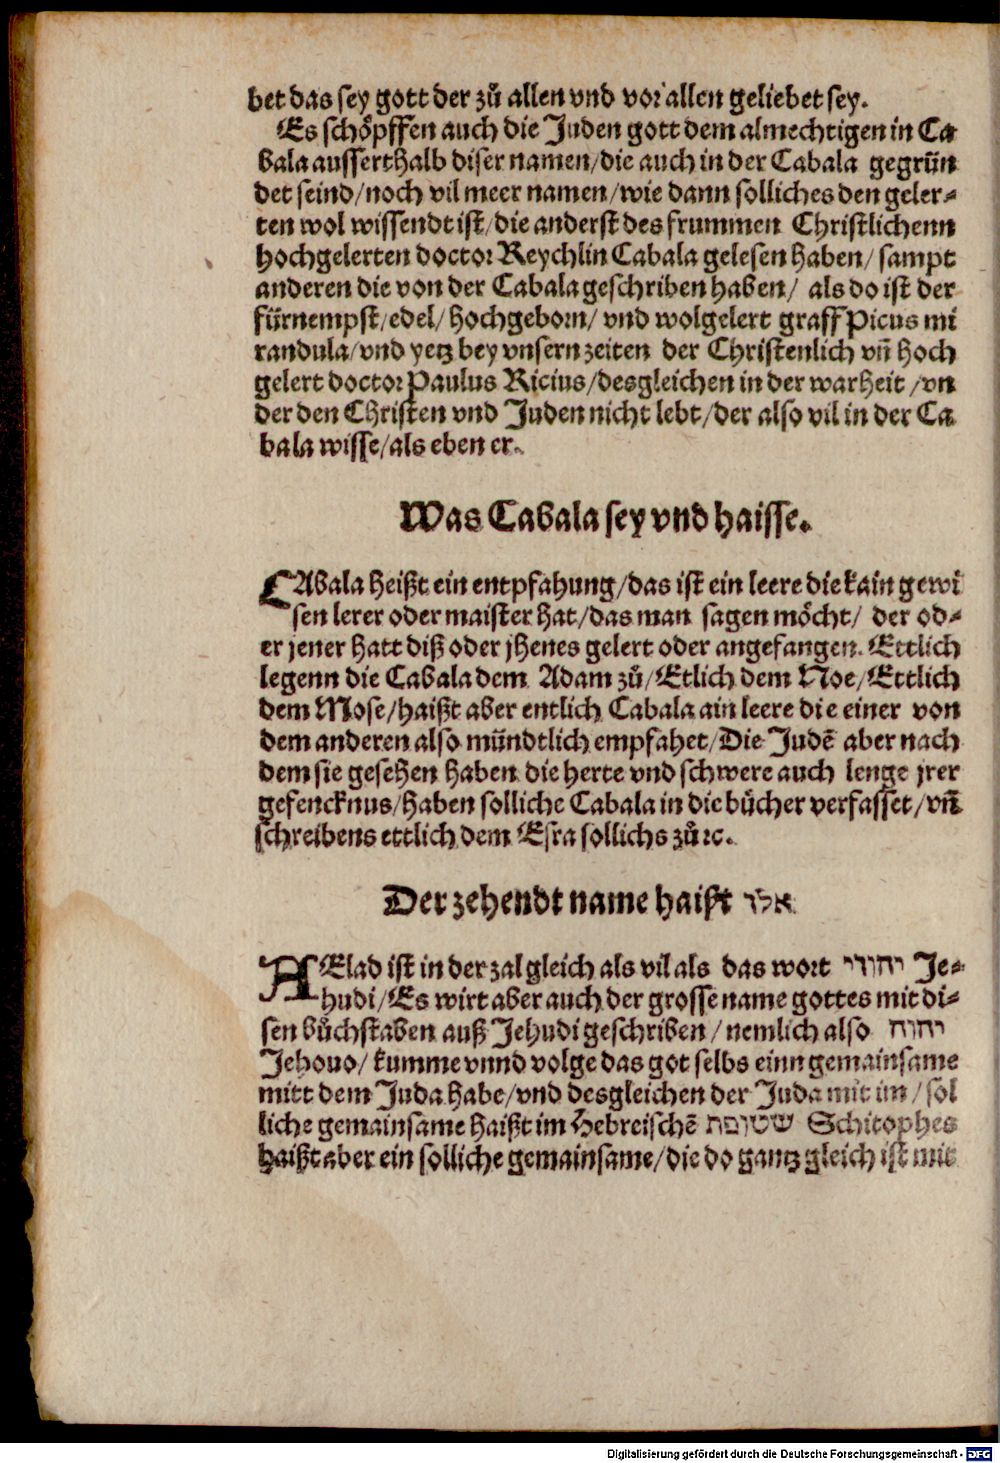 bet das sey gott der zů allen vnd vor allen geliebet sey.
Es schöpffen auch die Juden gott dem almechtigen in Ca
bala ausserthalb diser namen/die auch in der Cabala gegrün
det seind/noch vil meer namen/wie dann solliches den geler-
ten wol wissendt ist/die anderst des frummen Christlichenn
hochgelerten doctor Reychlin Cabala gelesen haben/ sampt
anderen die von der Cabala geschriben haben/ als do ist der
fürnempst/edel/hochgeborn/ vnd wolgelert graff Picus mi
randula/vnd yetz bey vnsern zeiten der Christenlich vn̄ hoch
gelert doctor Paulus Ricius/desgleichen in der warheit /vn
der den Christen vnd Juden nicht lebt/der also vil in der Ca
bala wisse/als eben er.
Was Cabala sey vnd haisse.
CAbala heißt ein entpfahung/das ist ein leere die kain gewi
sen lerer oder maister hat/das man sagen möcht/ der od-
er jener hatt diß oder jhenes gelert oder angefangen. Ettlich
legenn die Cabala dem Adam zů/Etlich dem Noe/Ettlich
dem Mose/haißt aber entlich Cabala ain leere die einer von
dem anderen also mündtlich empfahet/Die Judē aber nach
dem sie gesehen haben die herte vnd schwere auch lenge jrer
gefencknus/haben solliche Cabala in die bücher verfasset/vn̄
schreibens ettlich dem Esra sollichs zů ꝛc.
Der zehendt name haist אלד
AElad ist in der zal gleich als vil als das wort יהודי Je-
hudi/Es wirt aber auch der grosse name gottes mit di-
sen bůchstaben auß Jehudi geschriben/nemlich also יהוה
Jehouo/kumme vnnd volge das got selbs einn gemainsame
mitt dem Juda habe/vnd desgleichen der Juda mit im/sol
liche gemainsame haißt im Hebreischē Schitophes
haißt aber ein solliche gemainsame/die do gantz gleich ist mit
Digitalisierung gefördert durch die Deutsche Forschungsgemeinschaft - DFG